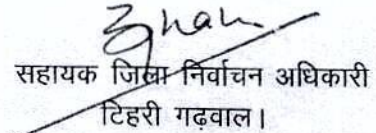 सहायक जिला निर्वाचन अधिकारी
टिहरी गढ़वाल।